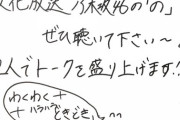 化放送「乃木坂46の「の」
ぜひ聴いて下さい〜
人でトークを盛り上げます!?
わくわく+
+ハラハラ+
どきどき